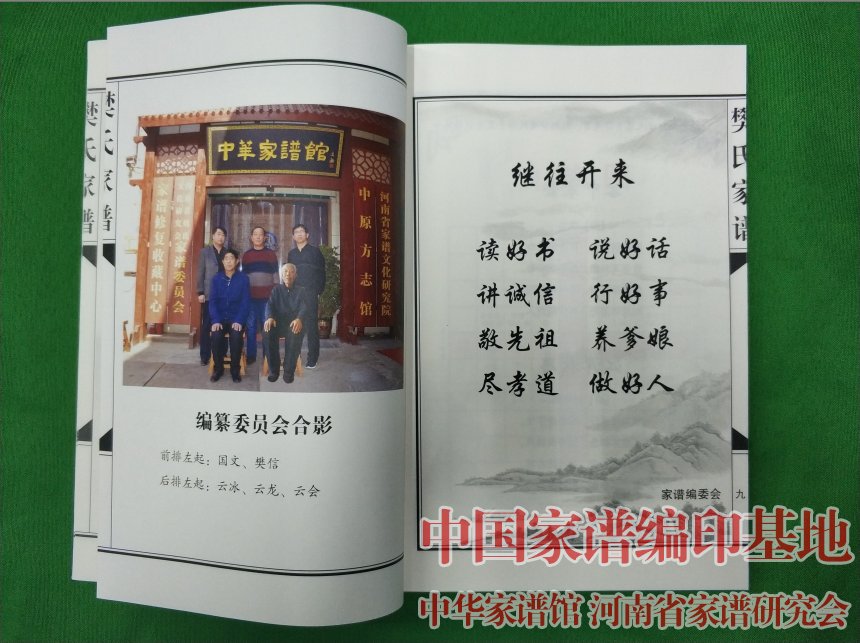 樊氏家谱
樊氏家谱
中华家譜館
家谱修复收藏中心
家谱委员会
河南省家谱文化研究院
中原方志馆
编纂委员会合影
前排左起：国文、樊信
后排左起：云冰、云龙、云会
樊氏家谱
继往开来
读好书 说好话
讲诚信 行好事
敬先祖 养爹娘
尽孝道 做好人
家谱编委会
九
中国家谱编印基地
中华家谱馆 河南省家谱研究会